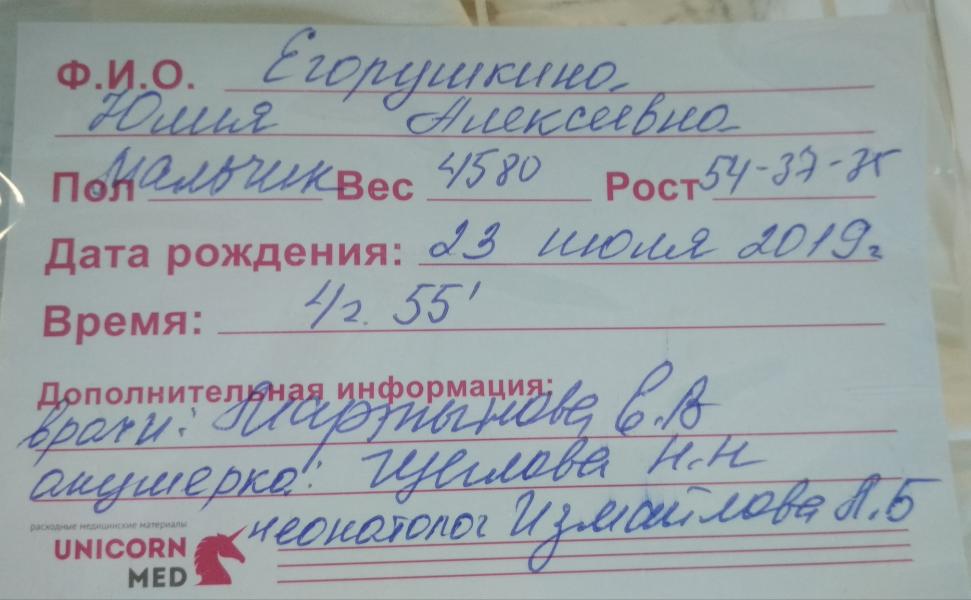 Ф.И.О. Егорушкина
Юлия Алексеевна
Пол мальчик Вес 4580 Рост 54-37-35
Дата рождения: 23 июля 2019г
Время: 4г. 55'
Дополнительная информация:
врачи: Мартынова Е.В
акушерка: Щеглова Н.Н
неонатолог Измайлова А.Б
расходные медицинские материалы
UNICORN
MED